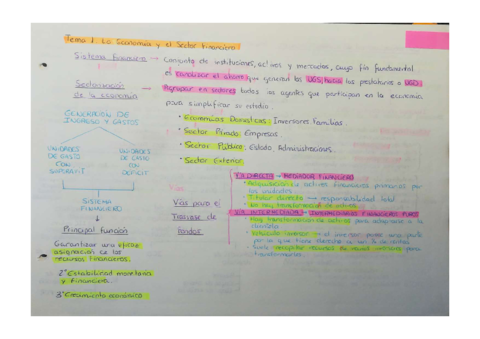 Tema 1. La Economía y el Sector Financiero
Sistema financiero → Conjunto de instituciones, activos y mercados, cuyo fin fundamental
el canalizar el ahorro que generan los UGS hacia los prestatarios o UGD.
Sectorización de la economía → Agrupar en sectores todos los agentes que participan en la economía
para simplificar su estudio.
• Economías Domésticas: Inversores. Familias.
• Sector Privado: Empresas.
• Sector Público: Estado, Administraciones.
• Sector Exterior
GENERACIÓN DE
INGRESO Y GASTOS
UNIDADES
DE GASTO
CON
SUPERÁVIT
UNIDADES
DE GASTO
CON
DÉFICIT
SISTEMA
FINANCIERO
Principal función
Garantizar una eficaz
asignación de los
recursos financieros.
2º Estabilidad monetaria
y financiera.
3º Crecimiento económico
Vías para el
Trasvase de
fondos
VÍA DIRECTA → MEDIADOR FINANCIERO
• Adquisición de activos financieros primarios por
las unidades
• Titular directo → responsabilidad total
No hay transformación de activos
VÍA INTERMEDIACIÓN → INTERMEDIARIOS FINANCIEROS PUROS
Hay transformación de activos para adecuarse a la